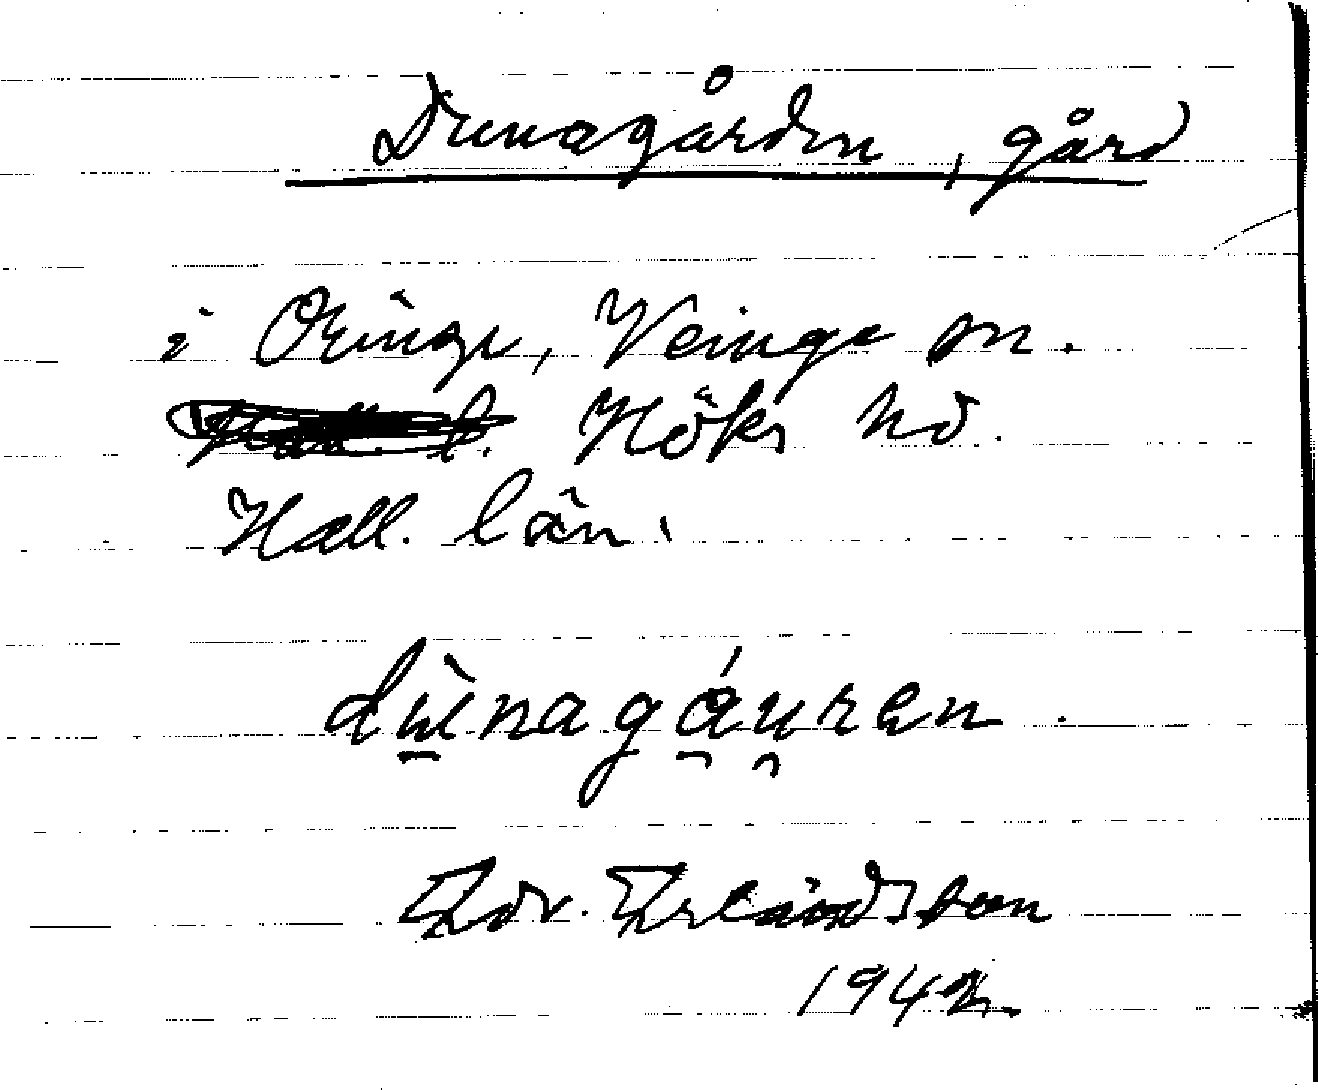 Dunagården, gård
i Oringe, Veinge sn.
Höks hd.
Hall. län.
dùnagáuren.
Edv. Erlandsson
1942